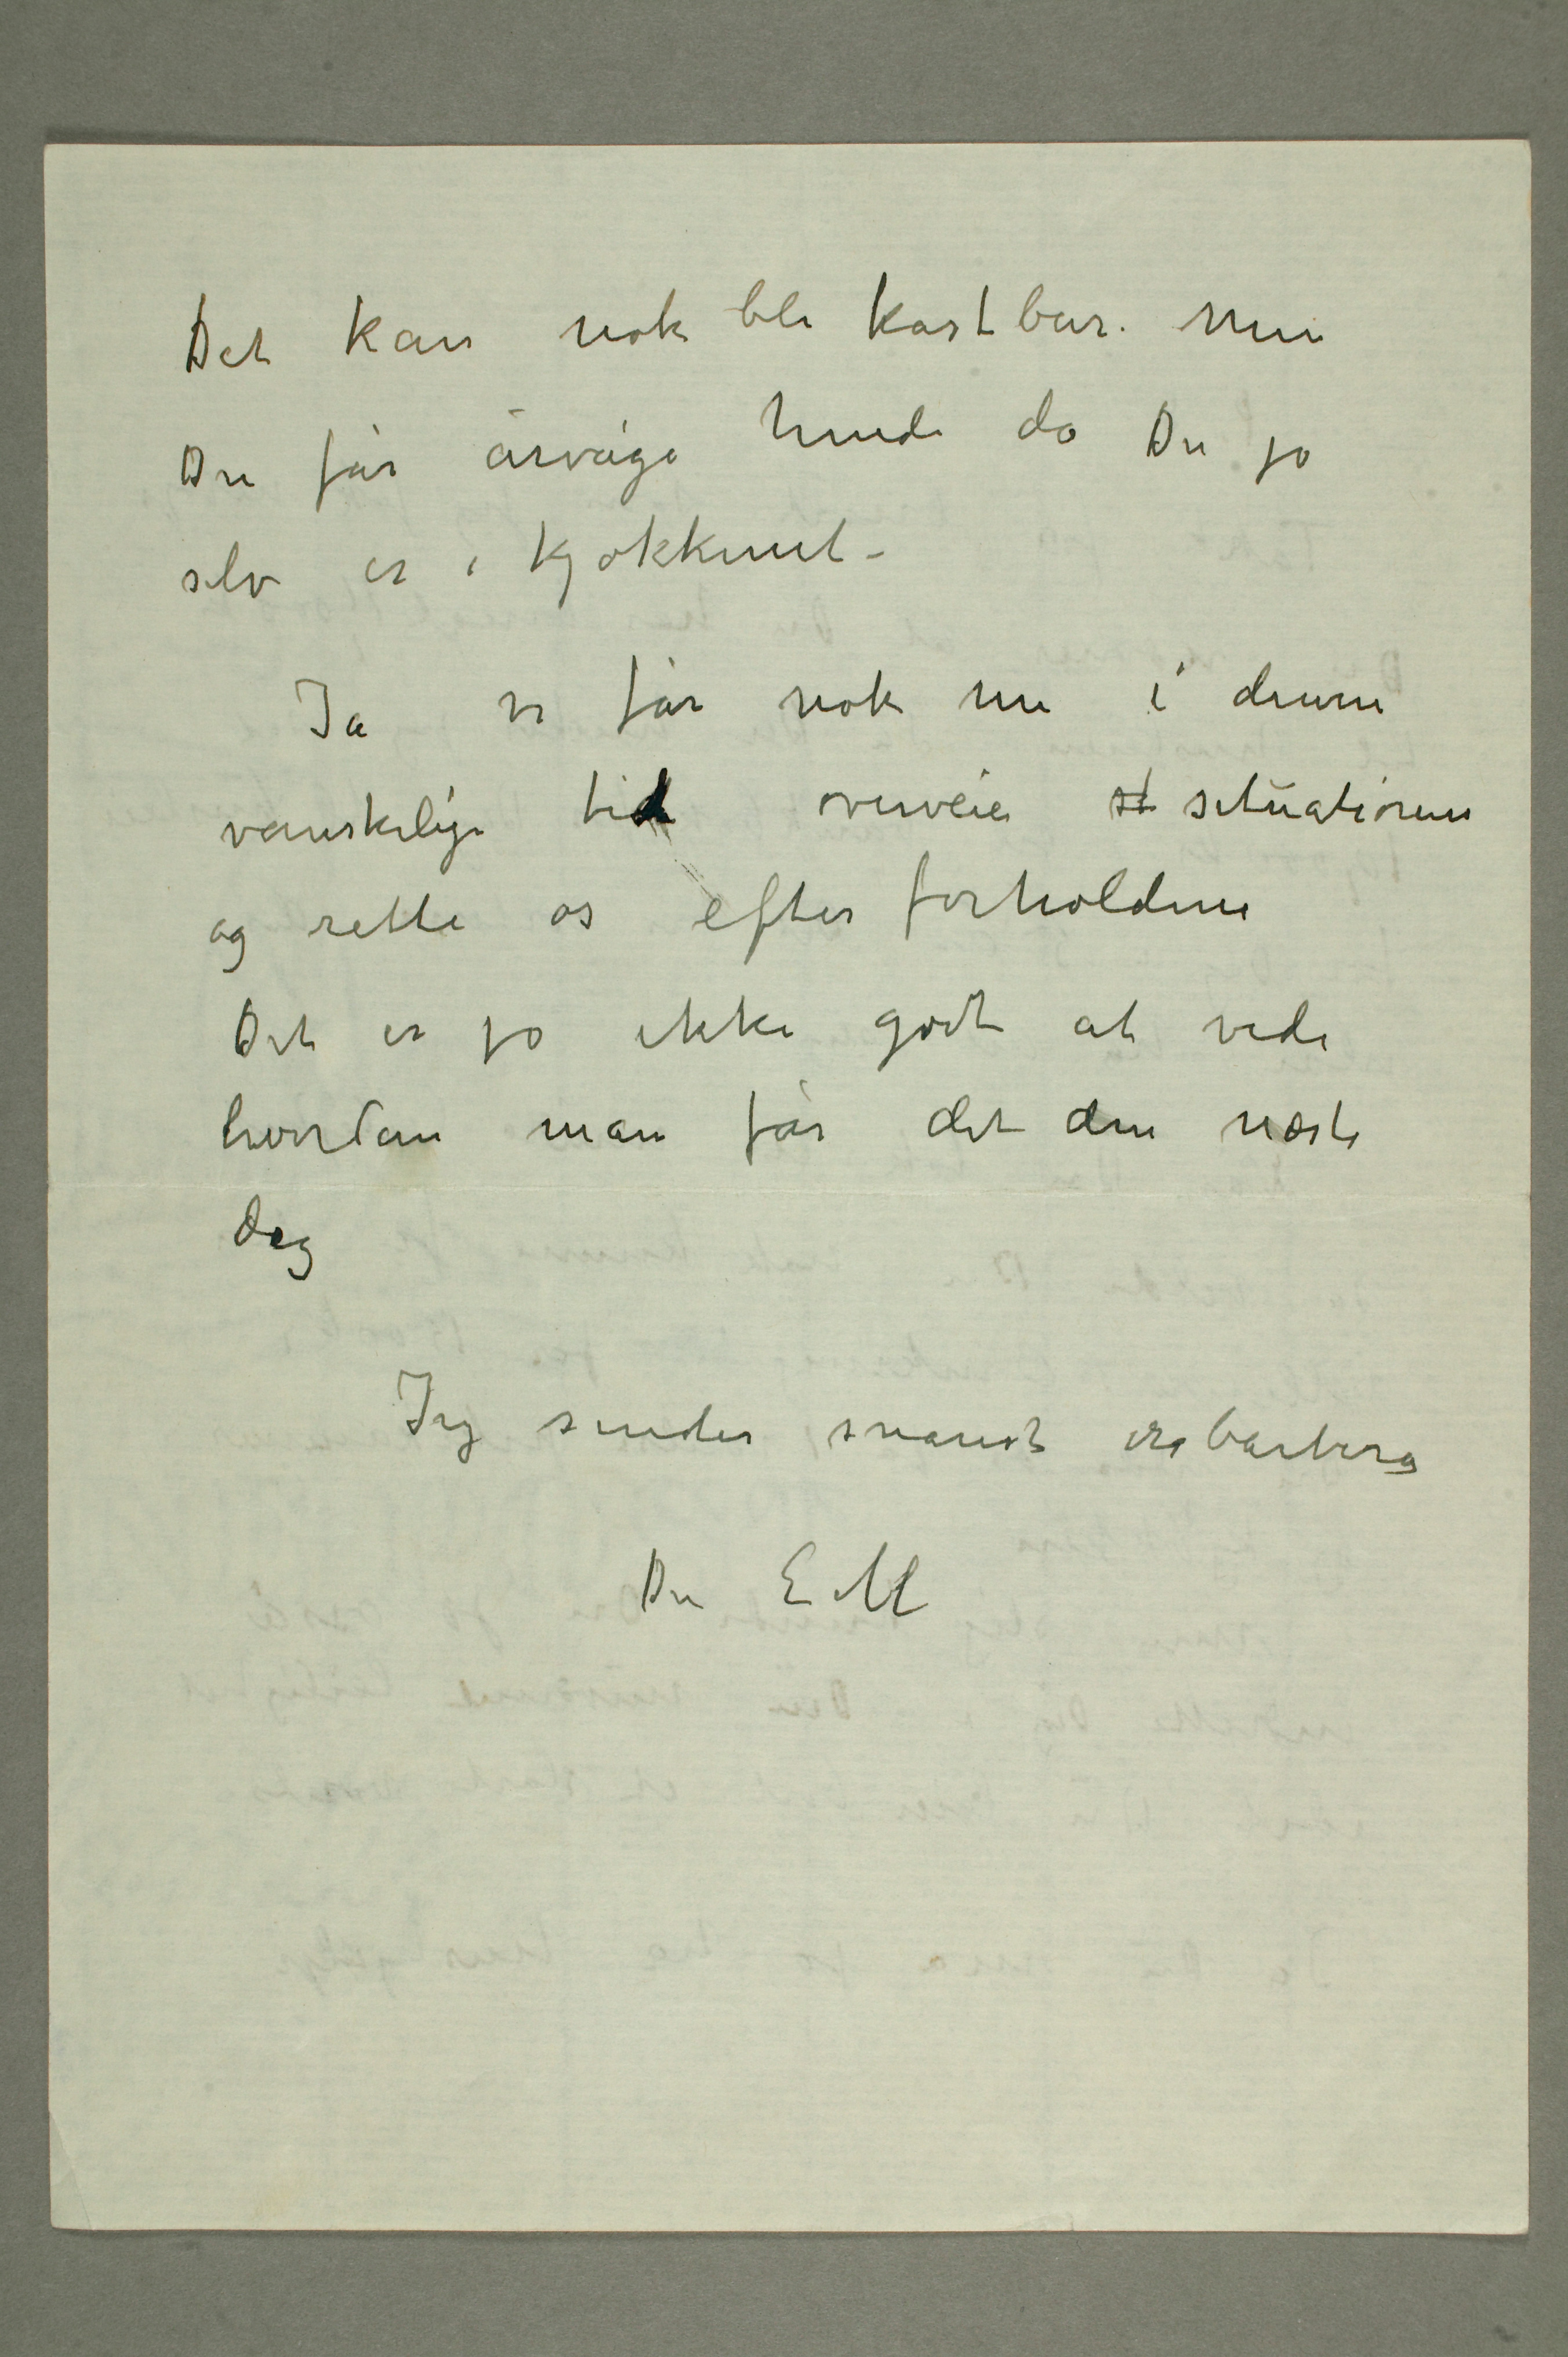 Det kan nok bli kostbar. Men
Du får årvåge hende da Du jo
selv er i kjøkkenet –
Ja vi får nok nu i denne
vanskelige tid overveie st situationen
og rette os efter forholdene
Det er jo ikke godt at vide
hvordan man får det den næste
dag
Jeg sender snarest
Din E M